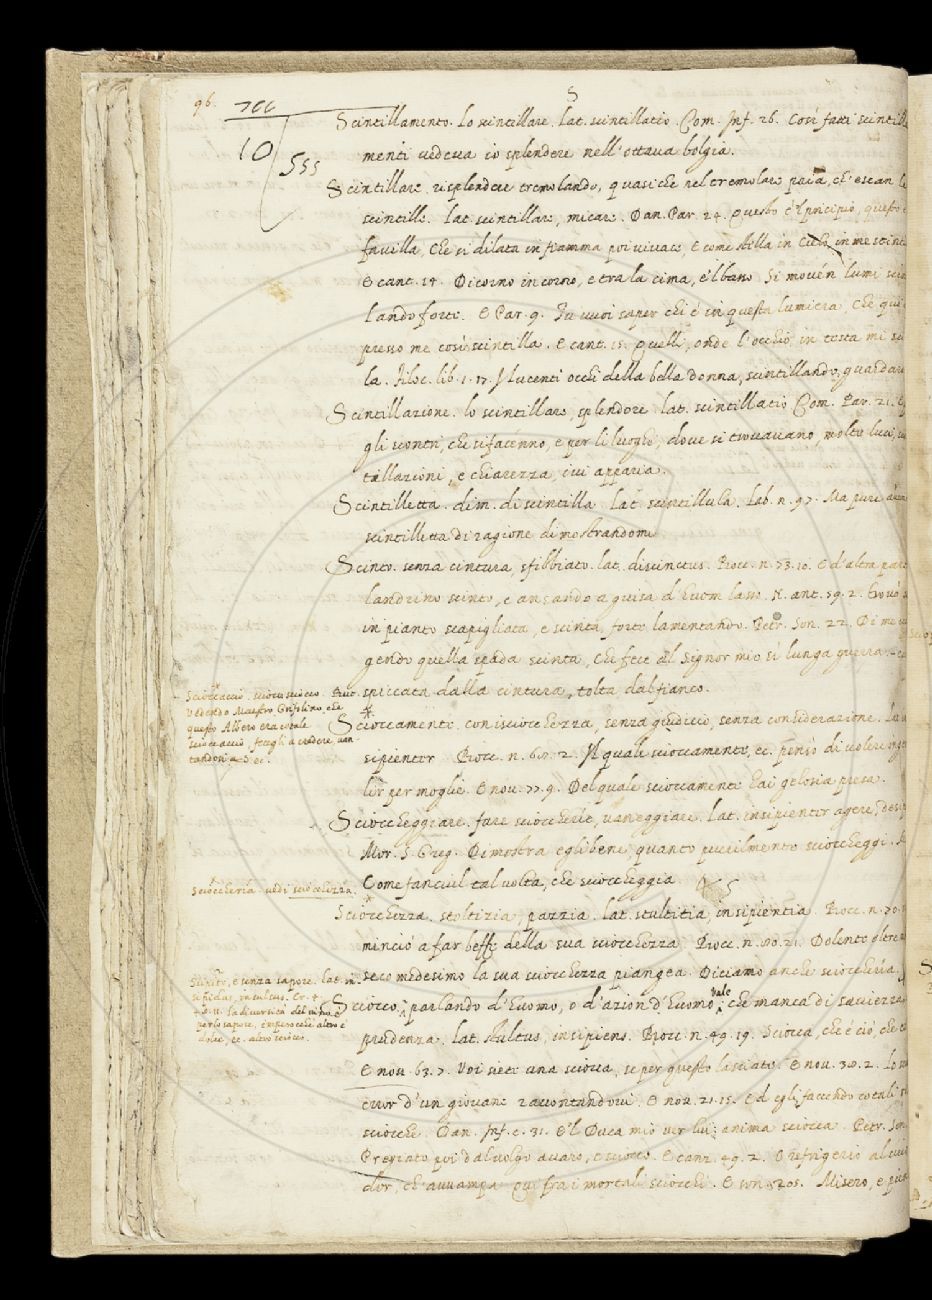 96.
S
10
555
Scintillamento. Lo scintillare. lat. scintillatio. Com. Inf. 26. Così fatti scintill
menti vedeva io splendere nell'ottava bolgia.
Scintillare. risplendere tremolando, quasi che nel tremolare paia, ch'escan le
scintille. lat. scintillare, micare. Dan. Par. 24. Questo è 'l principio, quest'è
favilla, Che si dilata in fiamma poi vivace, E come stella in Cielo, in me scint
E cant. 14. Di corno in corno, e tra la cima, e 'l basso Si movén lumi scin
lando forte. E Par. 9. Tu vuoi saper chi è in questa lumiera, Che qui
presso me così scintilla. E cant. 15. Quelli, onde l'occhio in testa mi sci
la. Filoc. lib. 1. 17. I lucenti occhi della bella donna, scintillando, guardare
Scintillazione. lo scintillare, splendore. lat. scintillatio Com. Par. 21.
gli scontri, che si facénno, e per li luoghi, dove si trovavano, molte luci,
tillazioni, e chiarezza, ivi apparia.
Scintilletta. dim. di scintilla. lat. scintillula. Lab. n. 97. Ma pure
scintilletta di ragione dimostrandomi
Scinto. senza cintura, sfibbiato. lat. discinctus. Bocc. n. 73. 10. E d'altra par
landrino scinto, e ansando a guisa d'huom lasso. N. ant. 59. 2. trovò
in pianto scapigliata, e scinta, forte lamentando. Petr. Son. 22. Di me
gendo quella spada scinta, Che fece al Signor mio sì lunga guerra
spiccata dalla cintura, tolta dal fianco.
Scioccaccio. sciocco sciocco.
vedendo Maestro Grifolino, che
questo Albero era cotale
scioccaccio, fecegli a credere, van
tandosi, ec.
Scioccamente. con isciocchezza, senza giudicio, senza considerazione.
sipienter. Bocc. n. 60. 2. Il quale scioccamente, ec. pensò di volere
lir per moglie. E nov. 77. 9. Del quale scioccamente hai gelosia presa.
Scioccheggiare. fare sciocchezze, vaneggiare. lat. insipienter agere, desip
Mor. S. Greg. Dimostra egli bene, quanto puerilmente scioccheggi.
Come fanciul talvolta, che scioccheggia.
Scioccheria. vedi sciocchezza.
Sciocchezza. stoltizia, pazzia. lat. stultitia, insipientia. Bocc. n. 70.
minciò a far beffe della sua sciocchezza. Bocc. n. 80. 21. Dolente oltre
seco medesimo la sua sciocchezza piangea. Diciamo anche scioccheria.
e senza sapore. lat. in
sipidus, insulsus. Cr. 4.
La diversità del vino è
per lo sapore, imperocchè altro è
dolce, ec. altro sciocco.
Sciocco, parlando d'huomo, o d'azion d'huomo, vale che manca di saviezza
prudenza. lat. stultus, insipiens. Bocc. n. 49. 19. Sciocca, che è ciò, che
E nov. 63. 7. Voi siete una sciocca, se per questo lasciate. E nov. 30. 2. Lo
cuor d'un giovane raccontandovi. E nov. 21. 15. Ed egli facendo cotali
sciocche. Dan. Inf. c. 31. E 'l Duca mio ver lui: anima sciocca. Petr. Son
Pregiato poi dal volgo avaro, e sciocco. E canz. 49. 2. O refrigerio al cieco
dor, ch'avvampa Qui fra i mortali sciocchi. E son. 205. Misero, e pien